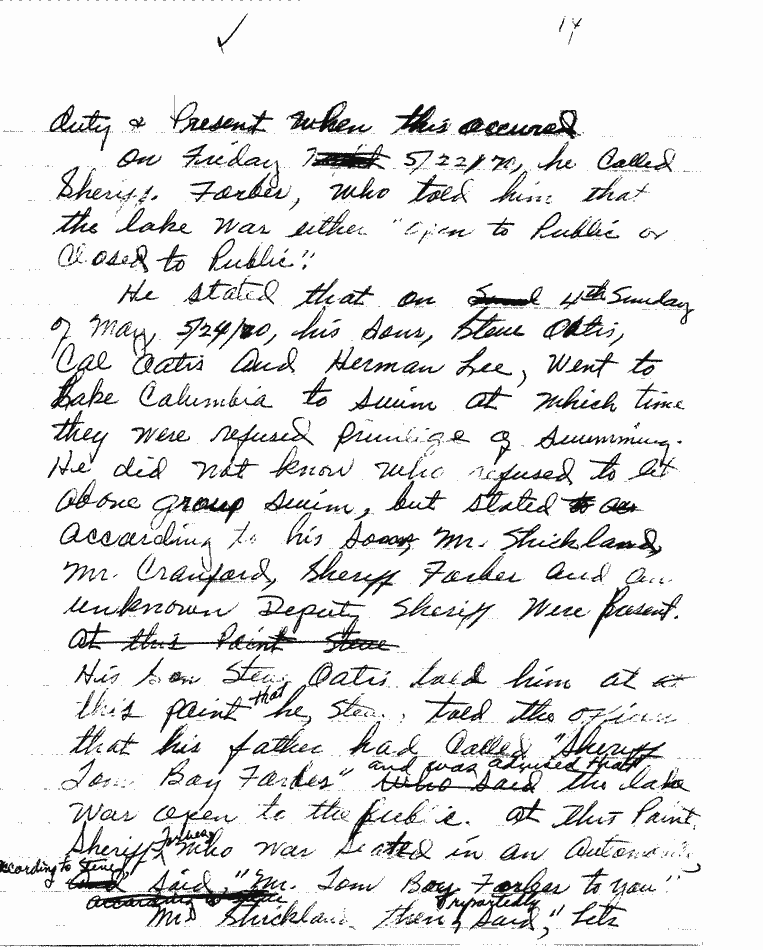 14
duty & Present When this occured
On Friday 5/22/70, he Called
Sheriff. Forbes, who told him that
the lake was either "open to Public or
Closed to Public".
He stated that on 4th Sunday
of May, 5/24/70, his sons, Steve Oatis,
Cal Oatis and Herman Lee, Went to
Lake Columbia to swim at which time
they were refused privilige of swimming.
He did not know who refused to let
above group swim, but stated
according to his son, Mr. Strickland,
Mr. Cranford, Sheriff Forbes and an
unknown Deputy Sheriff were present.
At this Point Steve
His Son Steve Oatis told him at
this point that he, Steve, told the officers
that his father had called "Sheriff
Tom Boy Forbes" and was advised that
who said the lake
was open to the public. At this Point,
Sheriff Forbes, who was seated in an Automobile,
according to Steve,
said, "Mr. Tom Boy Forbes to you".
according to Steve
Mr. Strickland then reportedly said, "Lets